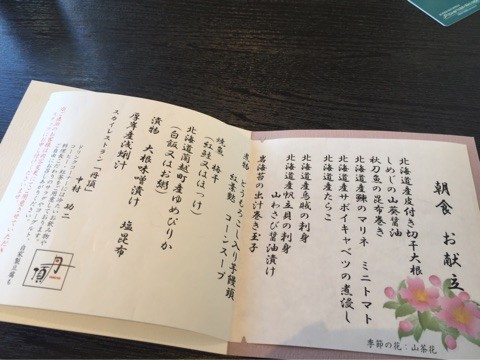 朝食 お献立
北海道産皮付き切干大根
しめじの山葵醤油
秋刀魚の昆布巻き
北海道産鰊のマリネ ミニトマト
北海道産サボイキャベツの煮浸し
北海道産たらこ
北海道産烏賊の刺身
北海道産帆立貝の刺身
山わさび醤油漬け
岩海苔の出汁巻き玉子
煮物 とうもろこし入り芋饅頭
紅葉麩 コーンスープ
焼魚 梅干
(紅鮭又はほっけ)
北海道蘭越町産ゆめぴりか
(白飯又はお粥)
漬物 大根味噌漬け 塩昆布
厚岸産浅蜊汁
スカイレストラン「丹頂」
中村 功二
丹頂
季節の花:山茶花